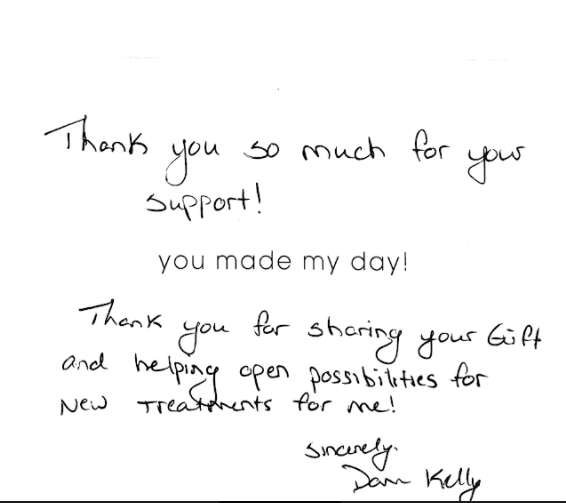 Thank you so much for your
support!
you made my day!
Thank you for sharing your Gift
and helping open possibilities for
New Treatments for me!
Sincerely.
Kelly